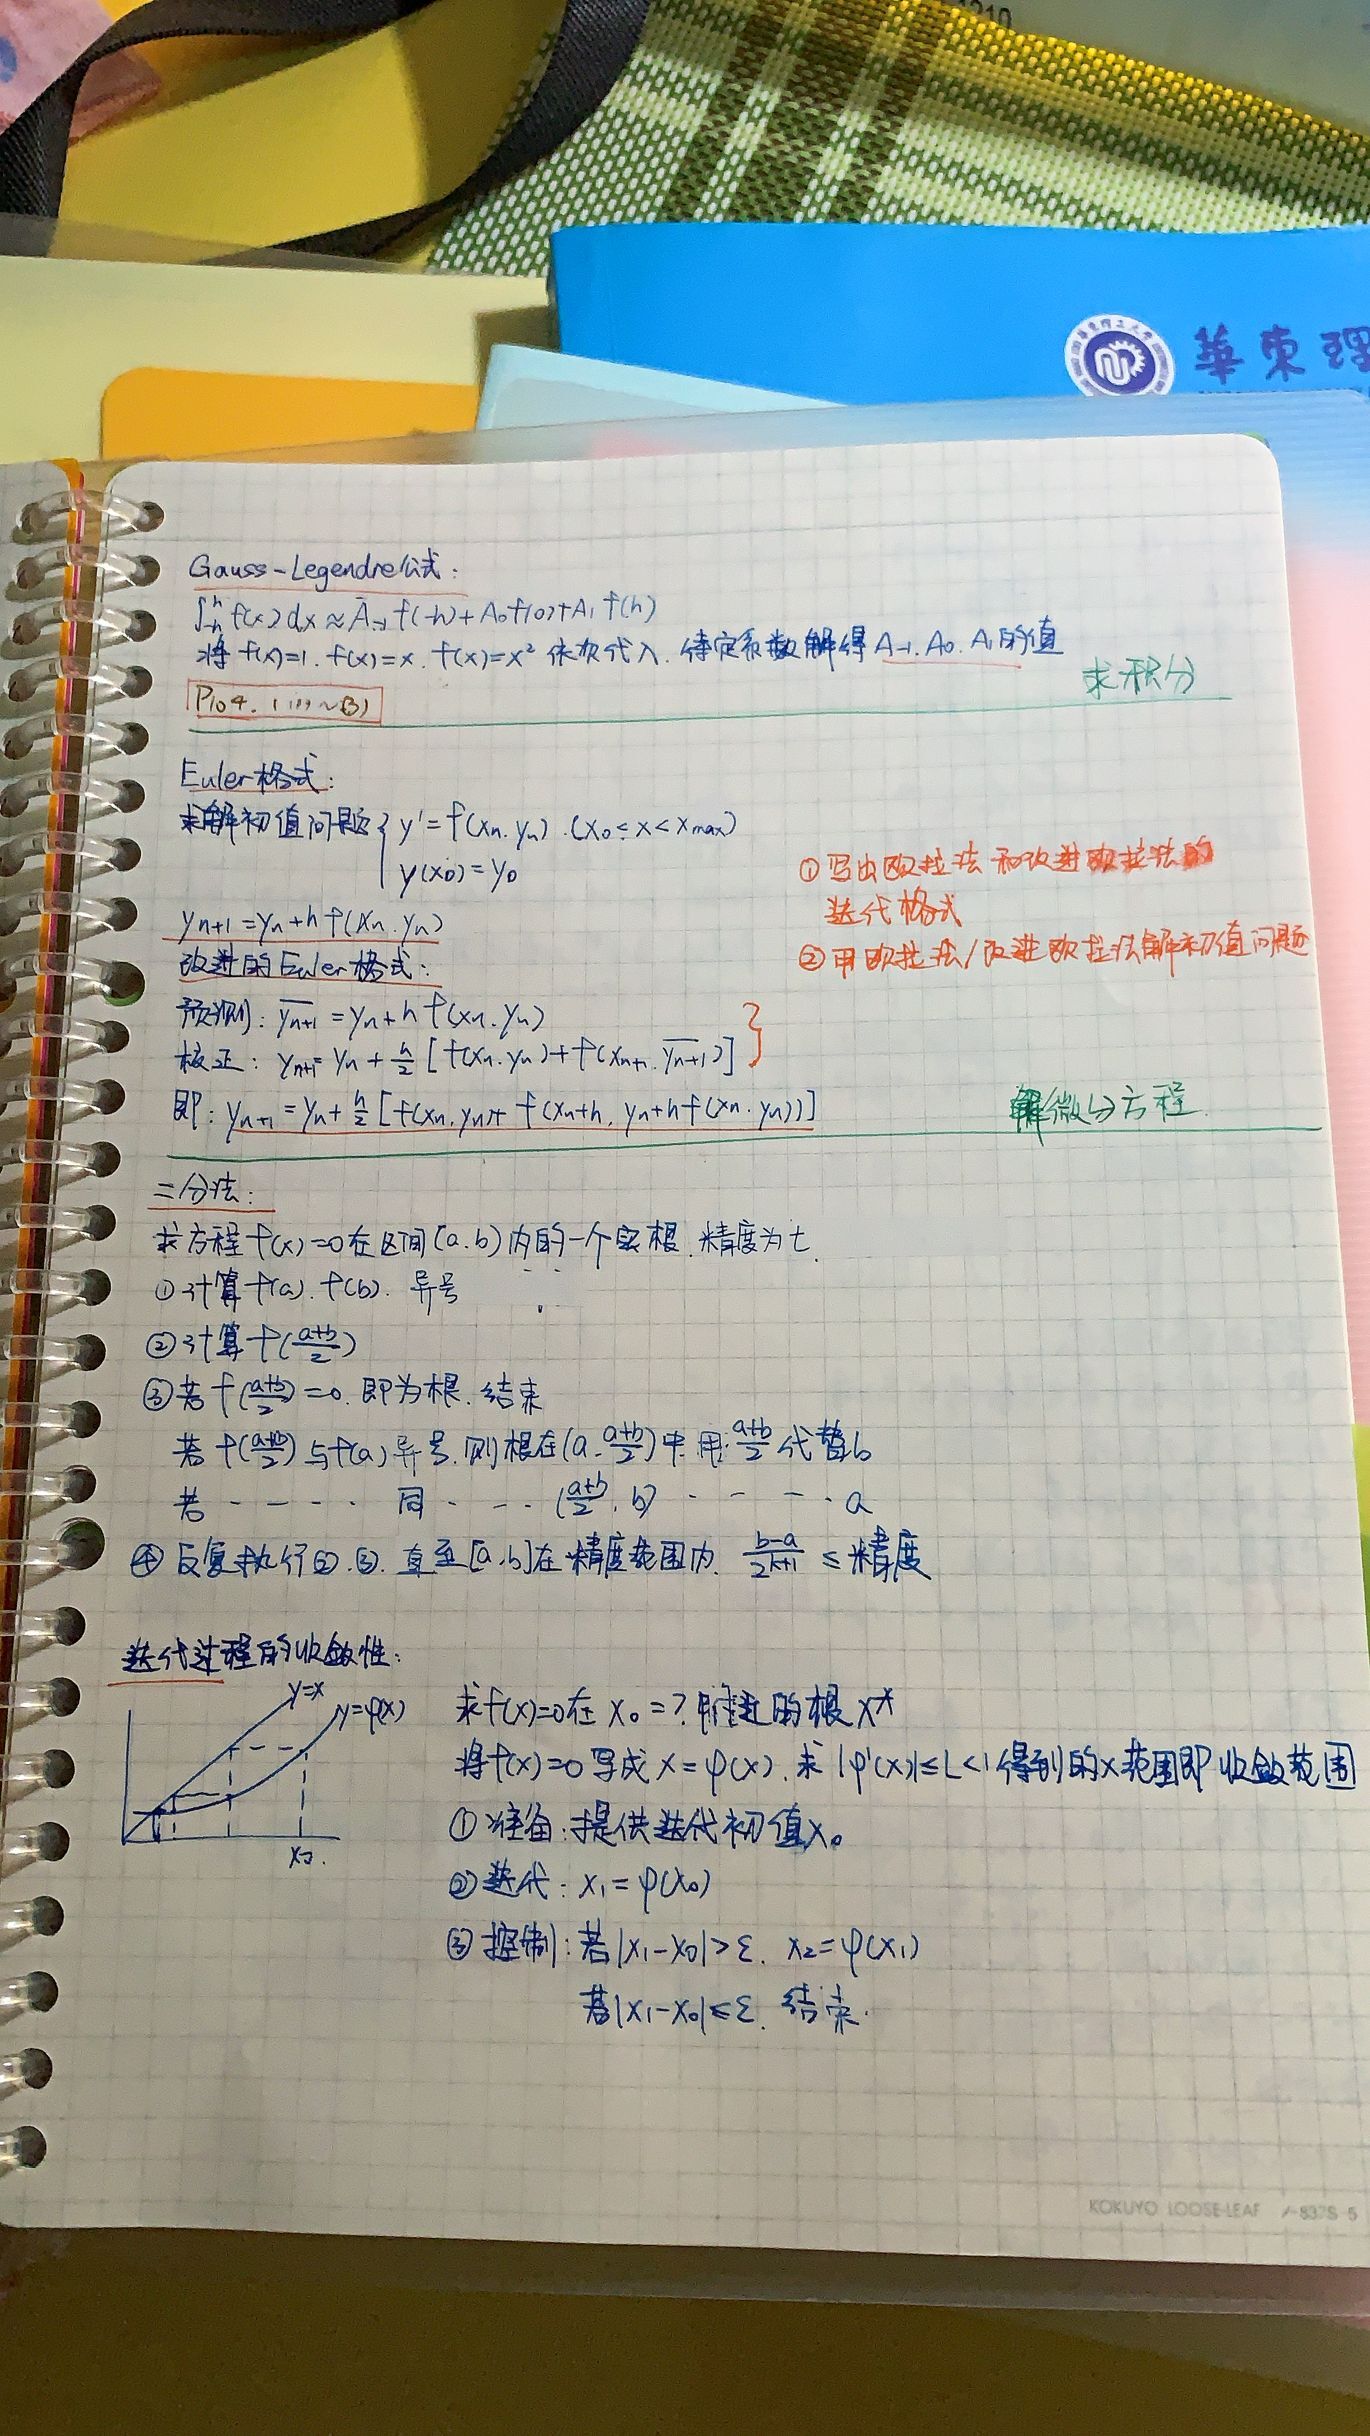 1210
華東理
Gauss-Legendre公式:
∫₋ₕʰ f(x)dx≈A₋₁f(-h)+A₀f(0)+A₁f(h)
将f(x)=1. f(x)=x. f(x)=x² 依次代入. 待定系数解得A₋₁.A₀.A₁的值
求积分
P104. 1 (1)~(3)
Euler格式:
求解初值问题{ y'=f(xₙ.yₙ).(x₀≤x<xmax)
y(x₀)=y₀
① 写出欧拉法和改进欧拉法的
迭代格式
yₙ₊₁=yₙ+hf(xₙ.yₙ)
② 用欧拉法/改进欧拉法解初值问题
改进的Euler格式:
预测: y̅ₙ₊₁=yₙ+hf(xₙ.yₙ)
校正: yₙ₊₁=yₙ+h/2[f(xₙ.yₙ)+f(xₙ₊₁.y̅ₙ₊₁)]
即: yₙ₊₁=yₙ+h/2[f(xₙ.yₙ)+f(xₙ+h, yₙ+hf(xₙ.yₙ))]
解微分方程.
二分法:
求方程f(x)=0在区间(a.b)内的一个实根.精度为t.
①计算f(a).f(b).异号
②计算f(a+b/2)
③若f(a+b/2)=0.即为根.结束
若f(a+b/2)与f(a)异号.则根在(a.a+b/2)中.用a+b/2代替b
若 - - - · 同 · - - · (a+b/2.b) · - - - · a
④ 反复执行②.③.直至[a.b]在精度范围内. b-a/2ᵏ⁺¹ ≤精度
迭代过程的收敛性:
y=x
y=φ(x)
x₀.
求f(x)=0在x₀=?附近的根x*
将f(x)=0写成x=φ(x).求|φ'(x)|≤L<1得到的x范围即收敛范围
①准备:提供迭代初值x₀
②迭代: x₁=φ(x₀)
③控制:若|x₁-x₀|>ε. x₂=φ(x₁)
若|x₁-x₀|≤ε. 结束.
KOKUYO LOOSE-LEAF